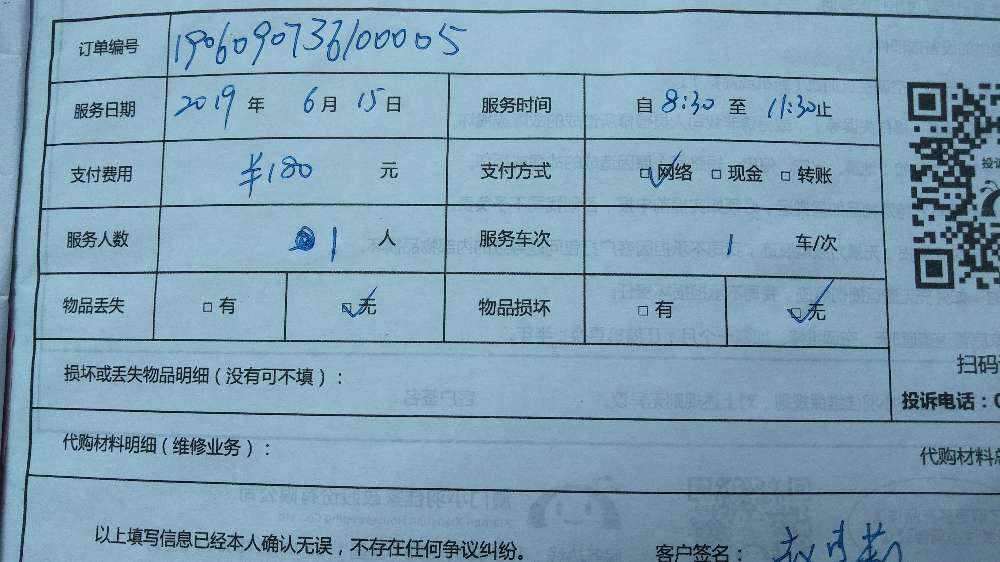 订单编号 190609073610005
服务日期 2019 年 6 月 15 日 服务时间 自 8:30 至 11:30 止
支付费用 ¥180 元 支付方式 □ 网络 □ 现金 □ 转账
服务人数 1 人 服务车次 1 车/次
物品丢失 □ 有 □ 无 物品损坏 □ 有 □ 无
损坏或丢失物品明细（没有可不填）：
扫码
投诉电话：0
代购材料明细（维修业务）：
代购材料总
以上填写信息已经本人确认无误，不存在任何争议纠纷。 客户签名：